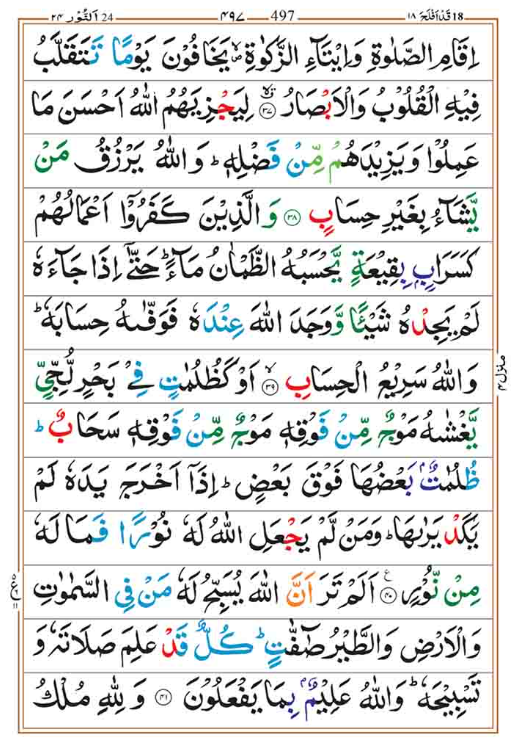 18 قَدْ اَفْلَحَ ١٨ 497 ٤٩٧ 24 اَلنُّوْر ٢٤
اِقَامِ الصَّلٰوةِ وَاِيْتَآءِ الزَّكٰوةِ ۙ يَخَافُوْنَ يَوْمًا تَتَقَلَّبُ
فِيْهِ الْقُلُوْبُ وَالْاَبْصَارُ ۙ ﴿٣٧﴾ لِيَجْزِيَهُمُ اللّٰهُ اَحْسَنَ مَا
عَمِلُوْا وَيَزِيْدَهُمْ مِّنْ فَضْلِهٖ ؕ وَاللّٰهُ يَرْزُقُ مَنْ
يَّشَآءُ بِغَيْرِ حِسَابٍ ﴿٣٨﴾ وَالَّذِيْنَ كَفَرُوْۤا اَعْمَالُهُمْ
كَسَرَابٍۭ بِقِيْعَةٍ يَّحْسَبُهُ الظَّمْاٰنُ مَآءً ؕ حَتّٰۤى اِذَا جَآءَهٗ
لَمْ يَجِدْهُ شَيْئًا وَّوَجَدَ اللّٰهَ عِنْدَهٗ فَوَفّٰىهُ حِسَابَهٗ ؕ
وَاللّٰهُ سَرِيْعُ الْحِسَابِ ۙ ﴿٣٩﴾ اَوْ كَظُلُمٰتٍ فِيْ بَحْرٍ لُّجِّيٍّ
يَّغْشٰىهُ مَوْجٌ مِّنْ فَوْقِهٖ مَوْجٌ مِّنْ فَوْقِهٖ سَحَابٌ ؕ
ظُلُمٰتٌۢ بَعْضُهَا فَوْقَ بَعْضٍ ؕ اِذَاۤ اَخْرَجَ يَدَهٗ لَمْ
يَكَدْ يَرٰىهَا ؕ وَمَنْ لَّمْ يَجْعَلِ اللّٰهُ لَهٗ نُوْرًا فَمَا لَهٗ
مِنْ نُّوْرٍ ﴿٤٠﴾ اَلَمْ تَرَ اَنَّ اللّٰهَ يُسَبِّحُ لَهٗ مَنْ فِي السَّمٰوٰتِ
وَالْاَرْضِ وَالطَّيْرُ صٰٓفّٰتٍ ؕ كُلٌّ قَدْ عَلِمَ صَلَاتَهٗ وَ
تَسْبِيْحَهٗ ؕ وَاللّٰهُ عَلِيْمٌۢ بِمَا يَفْعَلُوْنَ ﴿٤١﴾ وَلِلّٰهِ مُلْكُ
منزل ٤